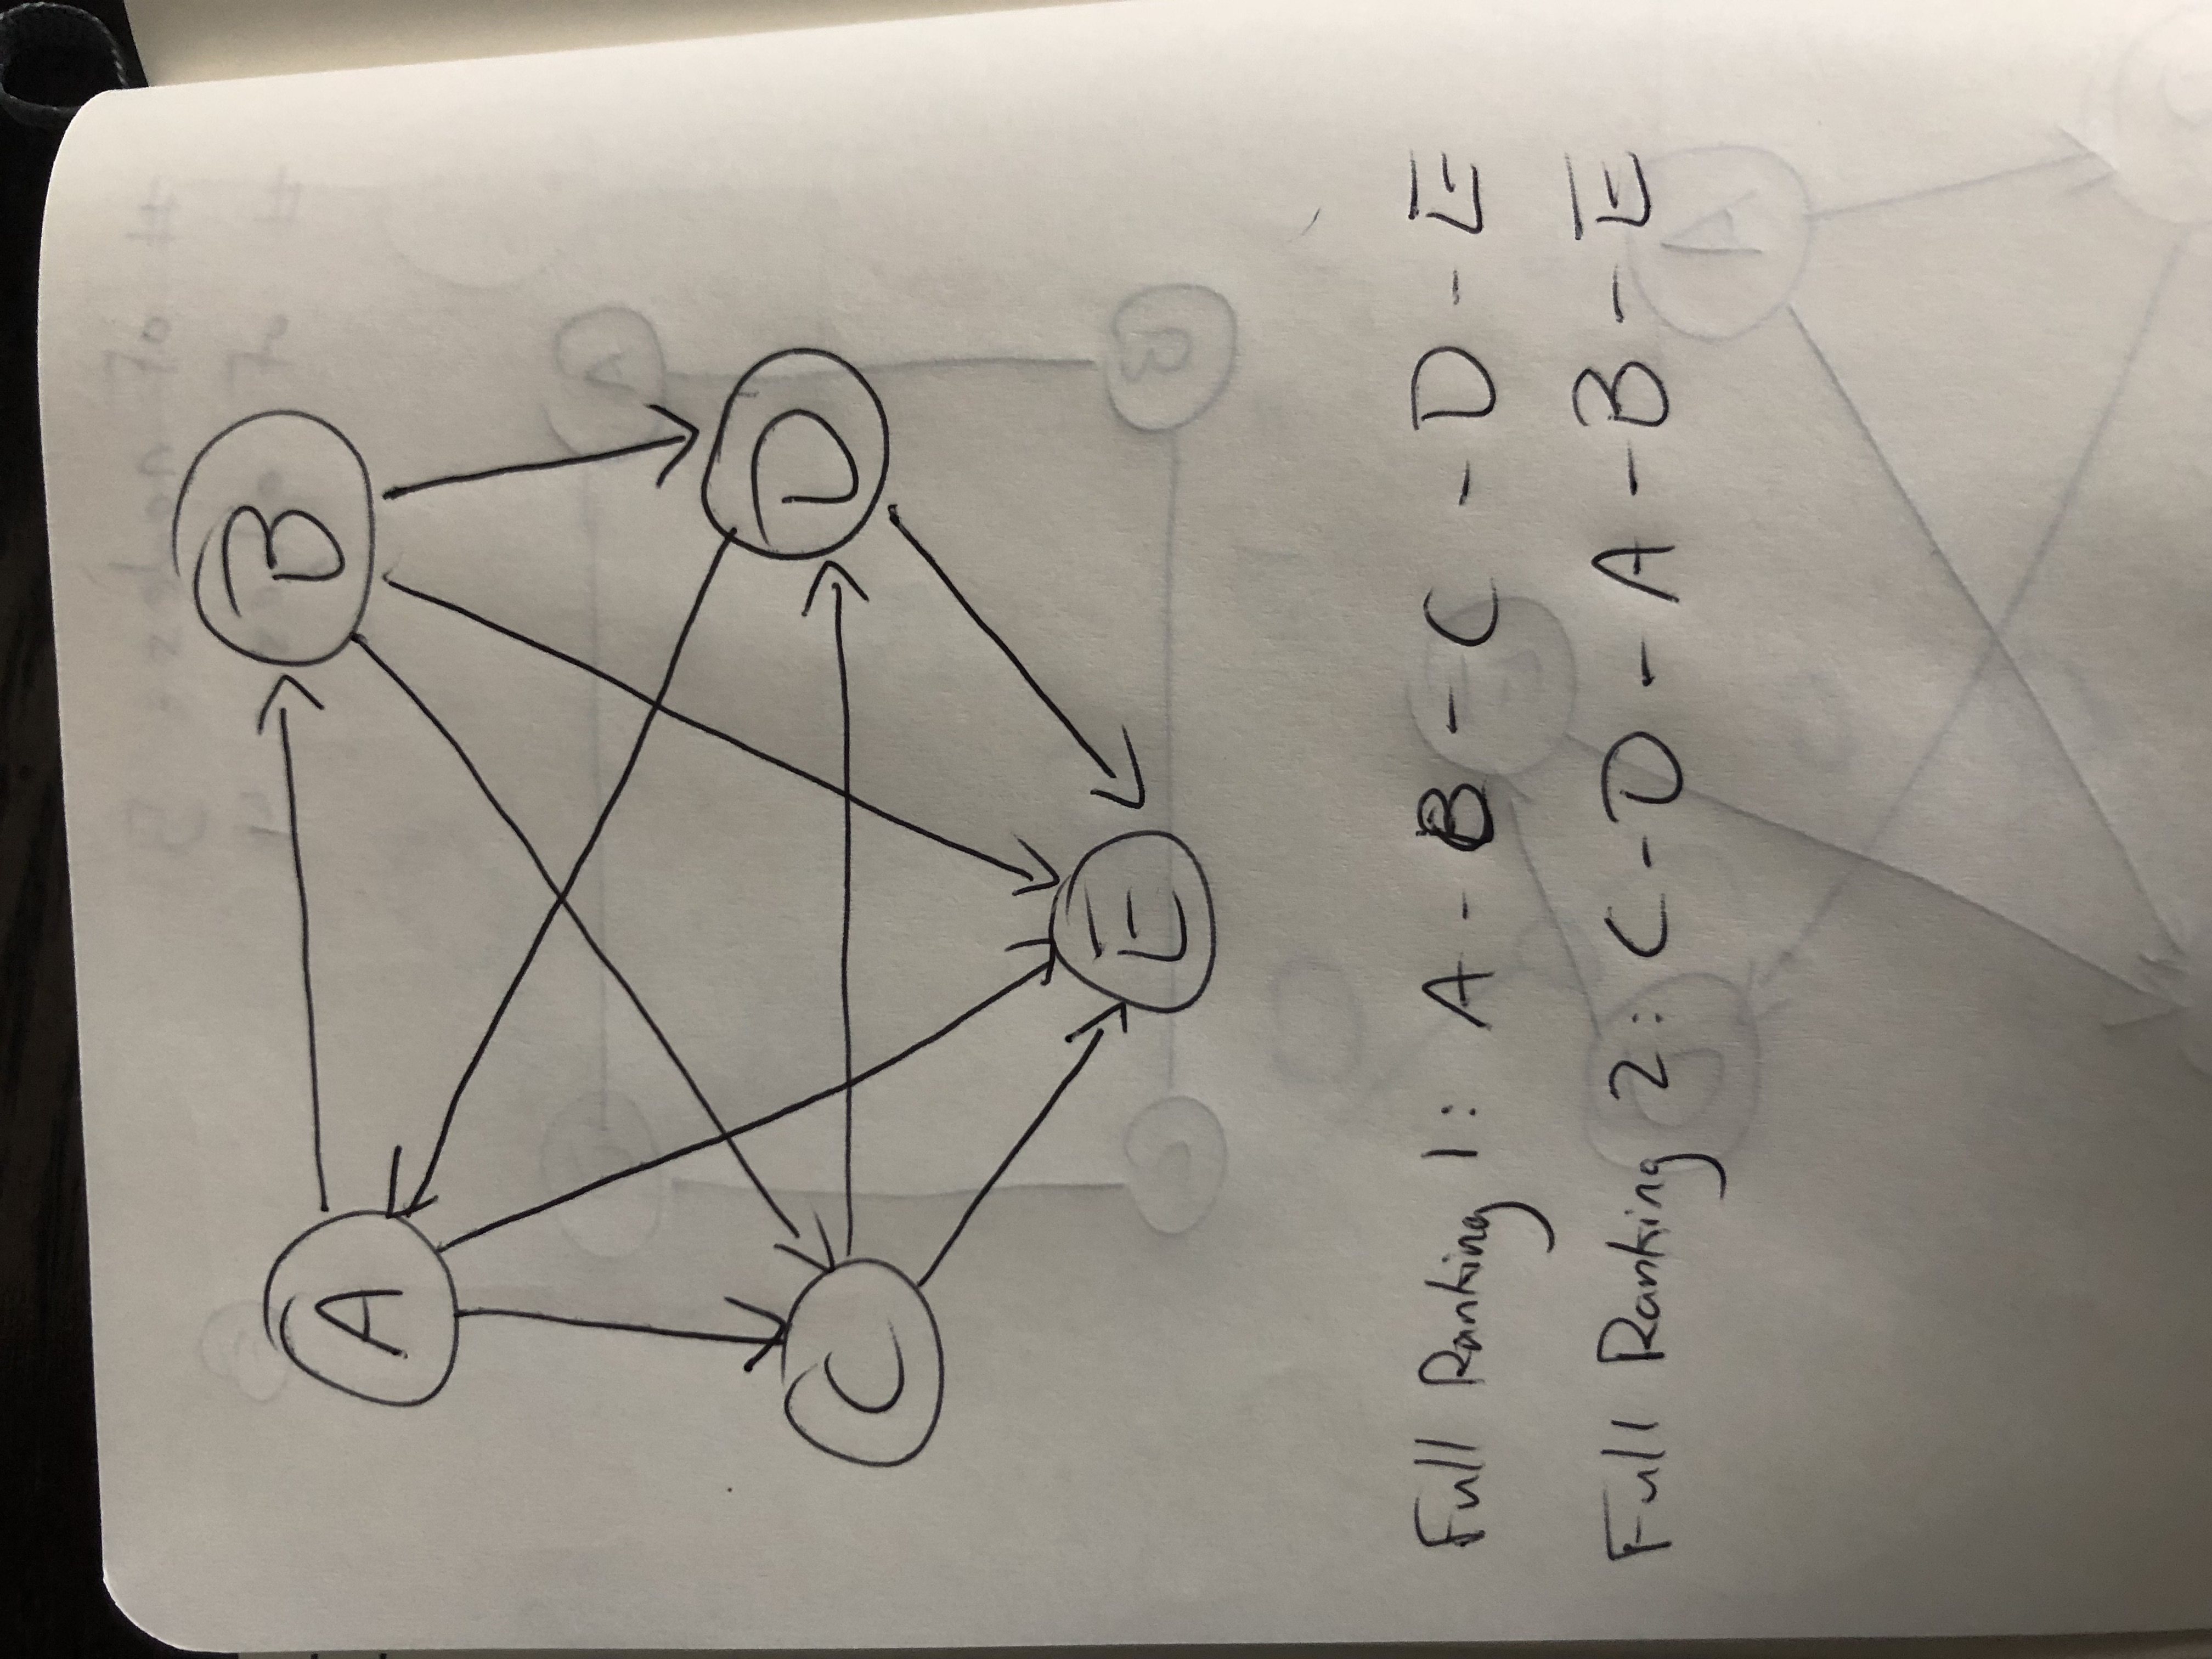 # of nodes: 5
A
B
C
D
E
Full Ranking 1: A - B - C - D - E
Full Ranking 2: C - D - A - B - E